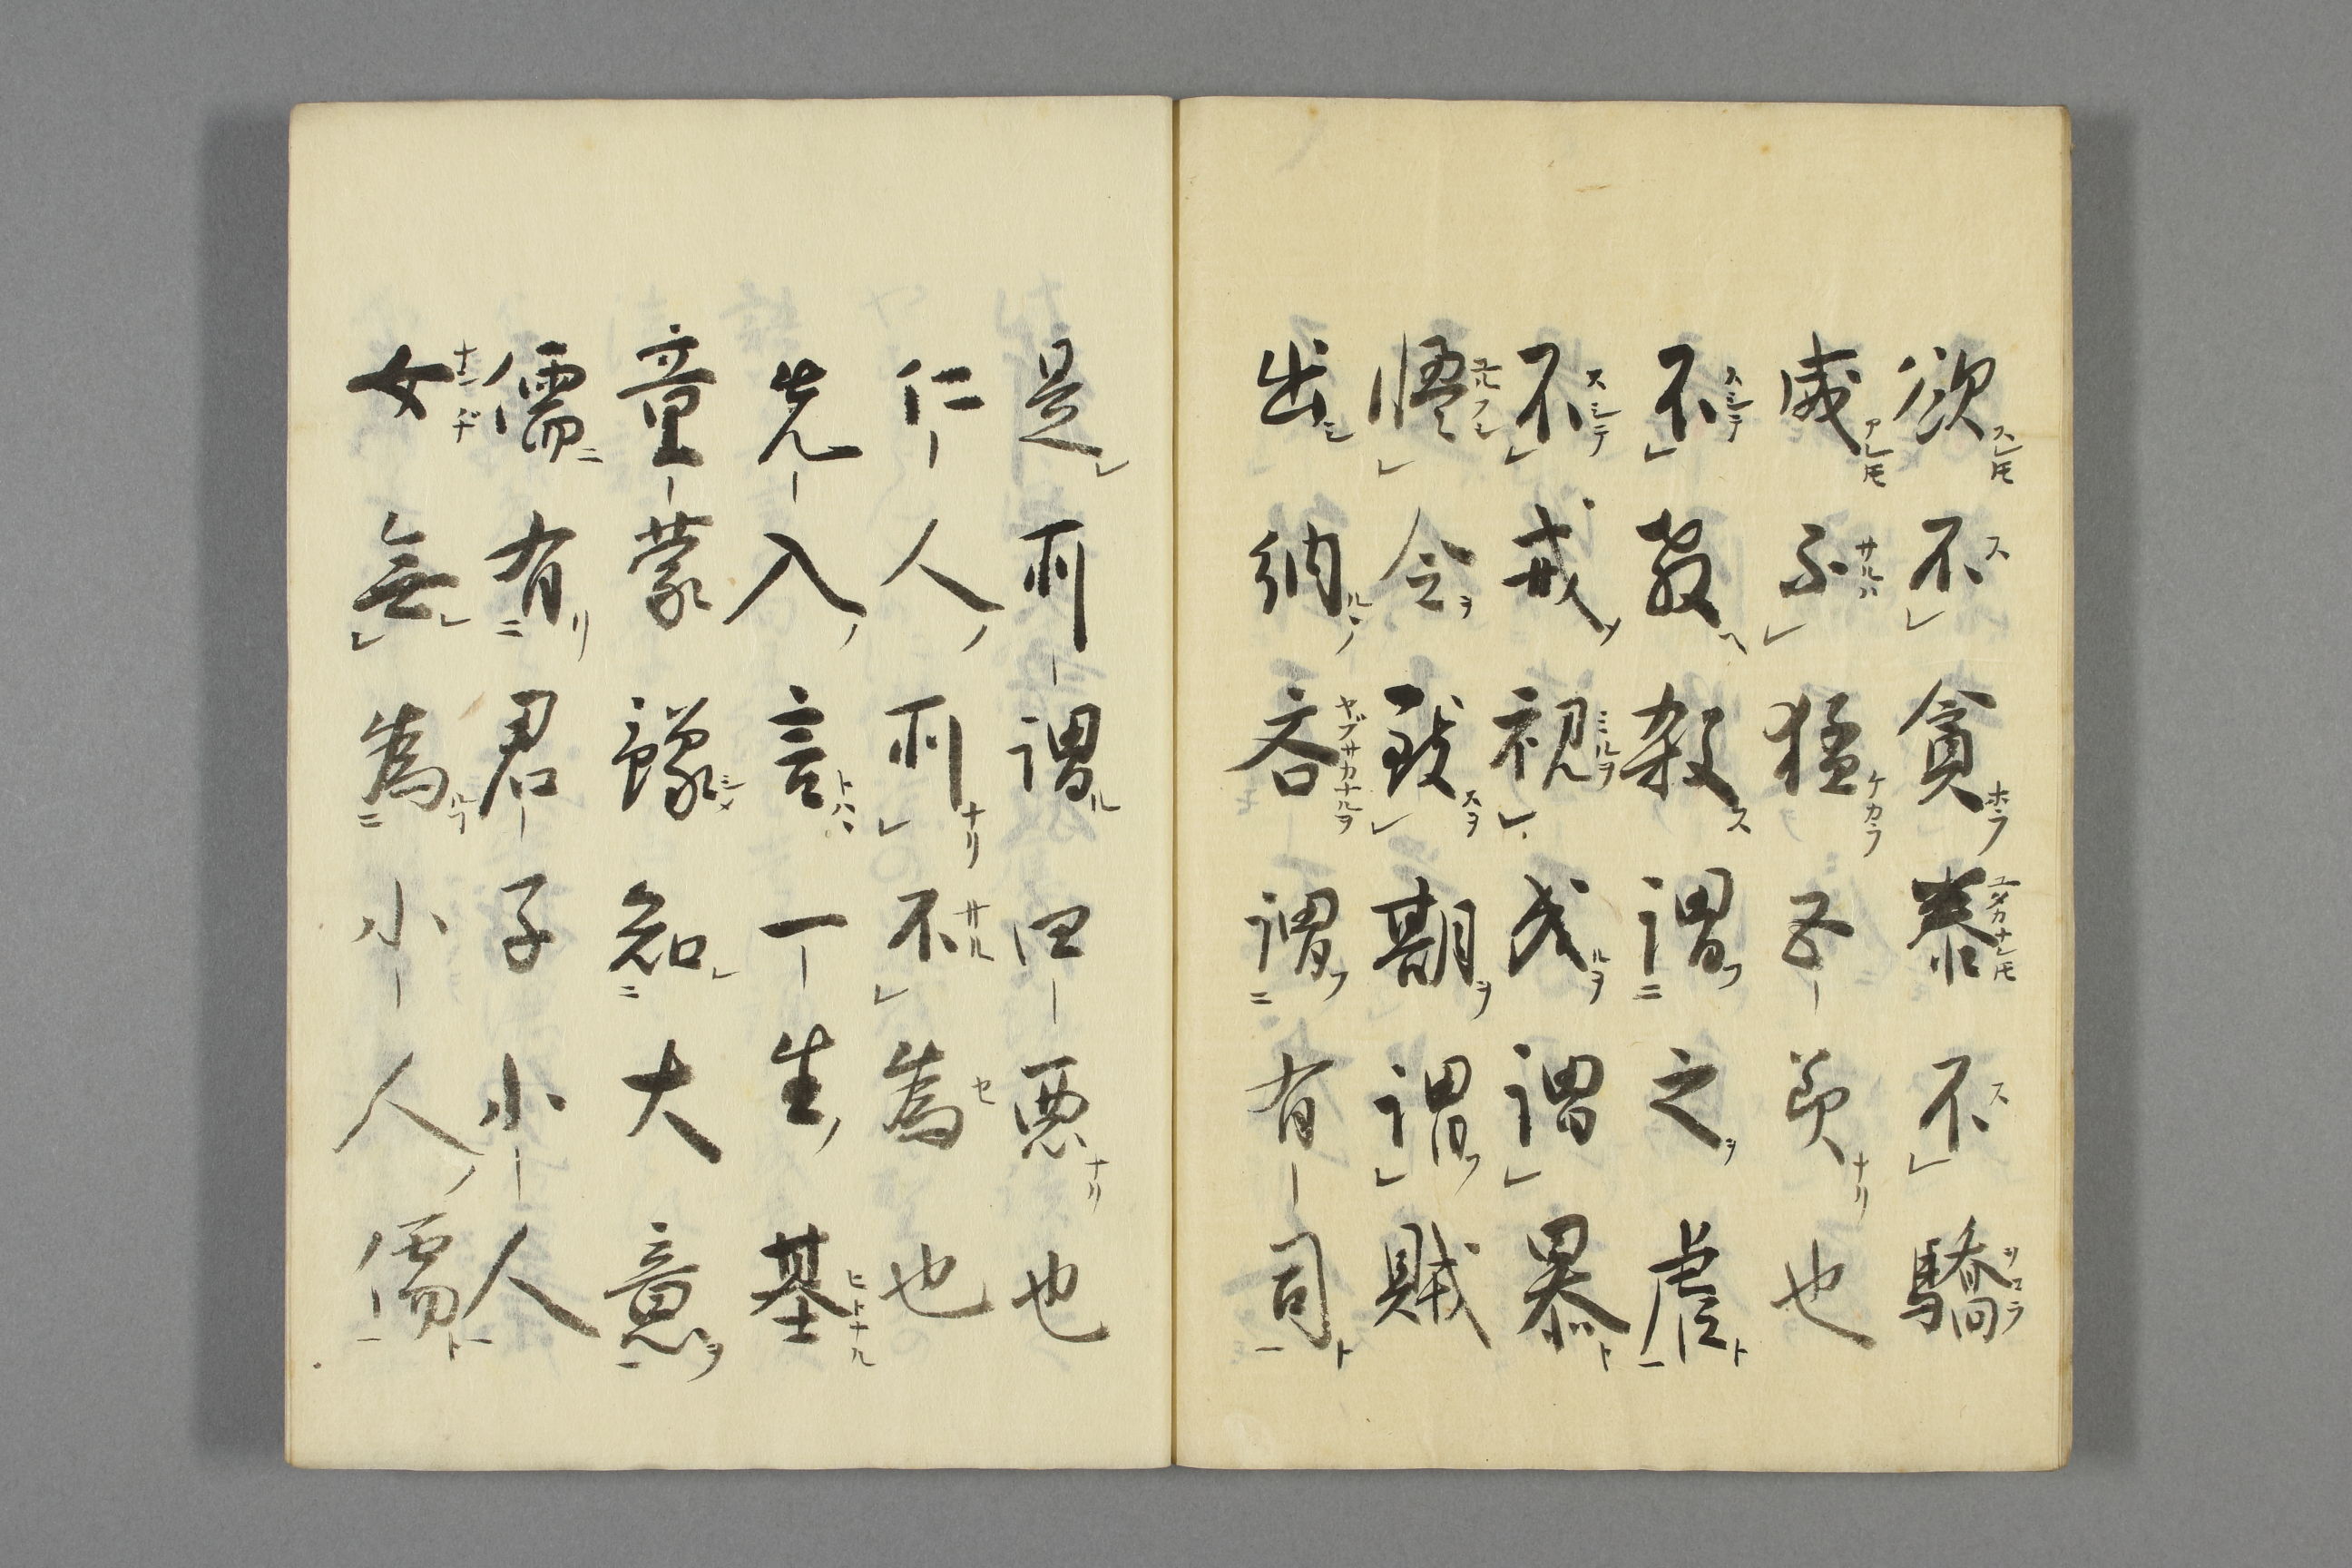 欲不貪泰不驕
威不猛五美也
不教殺謂之虐
不戒視成謂暴
慢令致期謂賊
出納吝謂有司
是所謂四悪也
仁人所不為也
先入言一生基
童蒙豫知大意
儒有君子小人
女無為小人儒